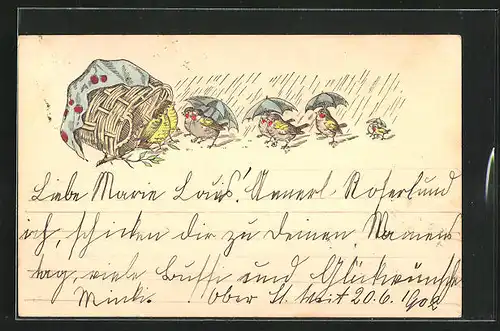 Liebe Marie Louis! Annerl Roserl und
ich, schicken dir zu Deinem Namens
tag, viele Bussi und Glückwünsche
Minki. Ober St. Veit 20.6.1902